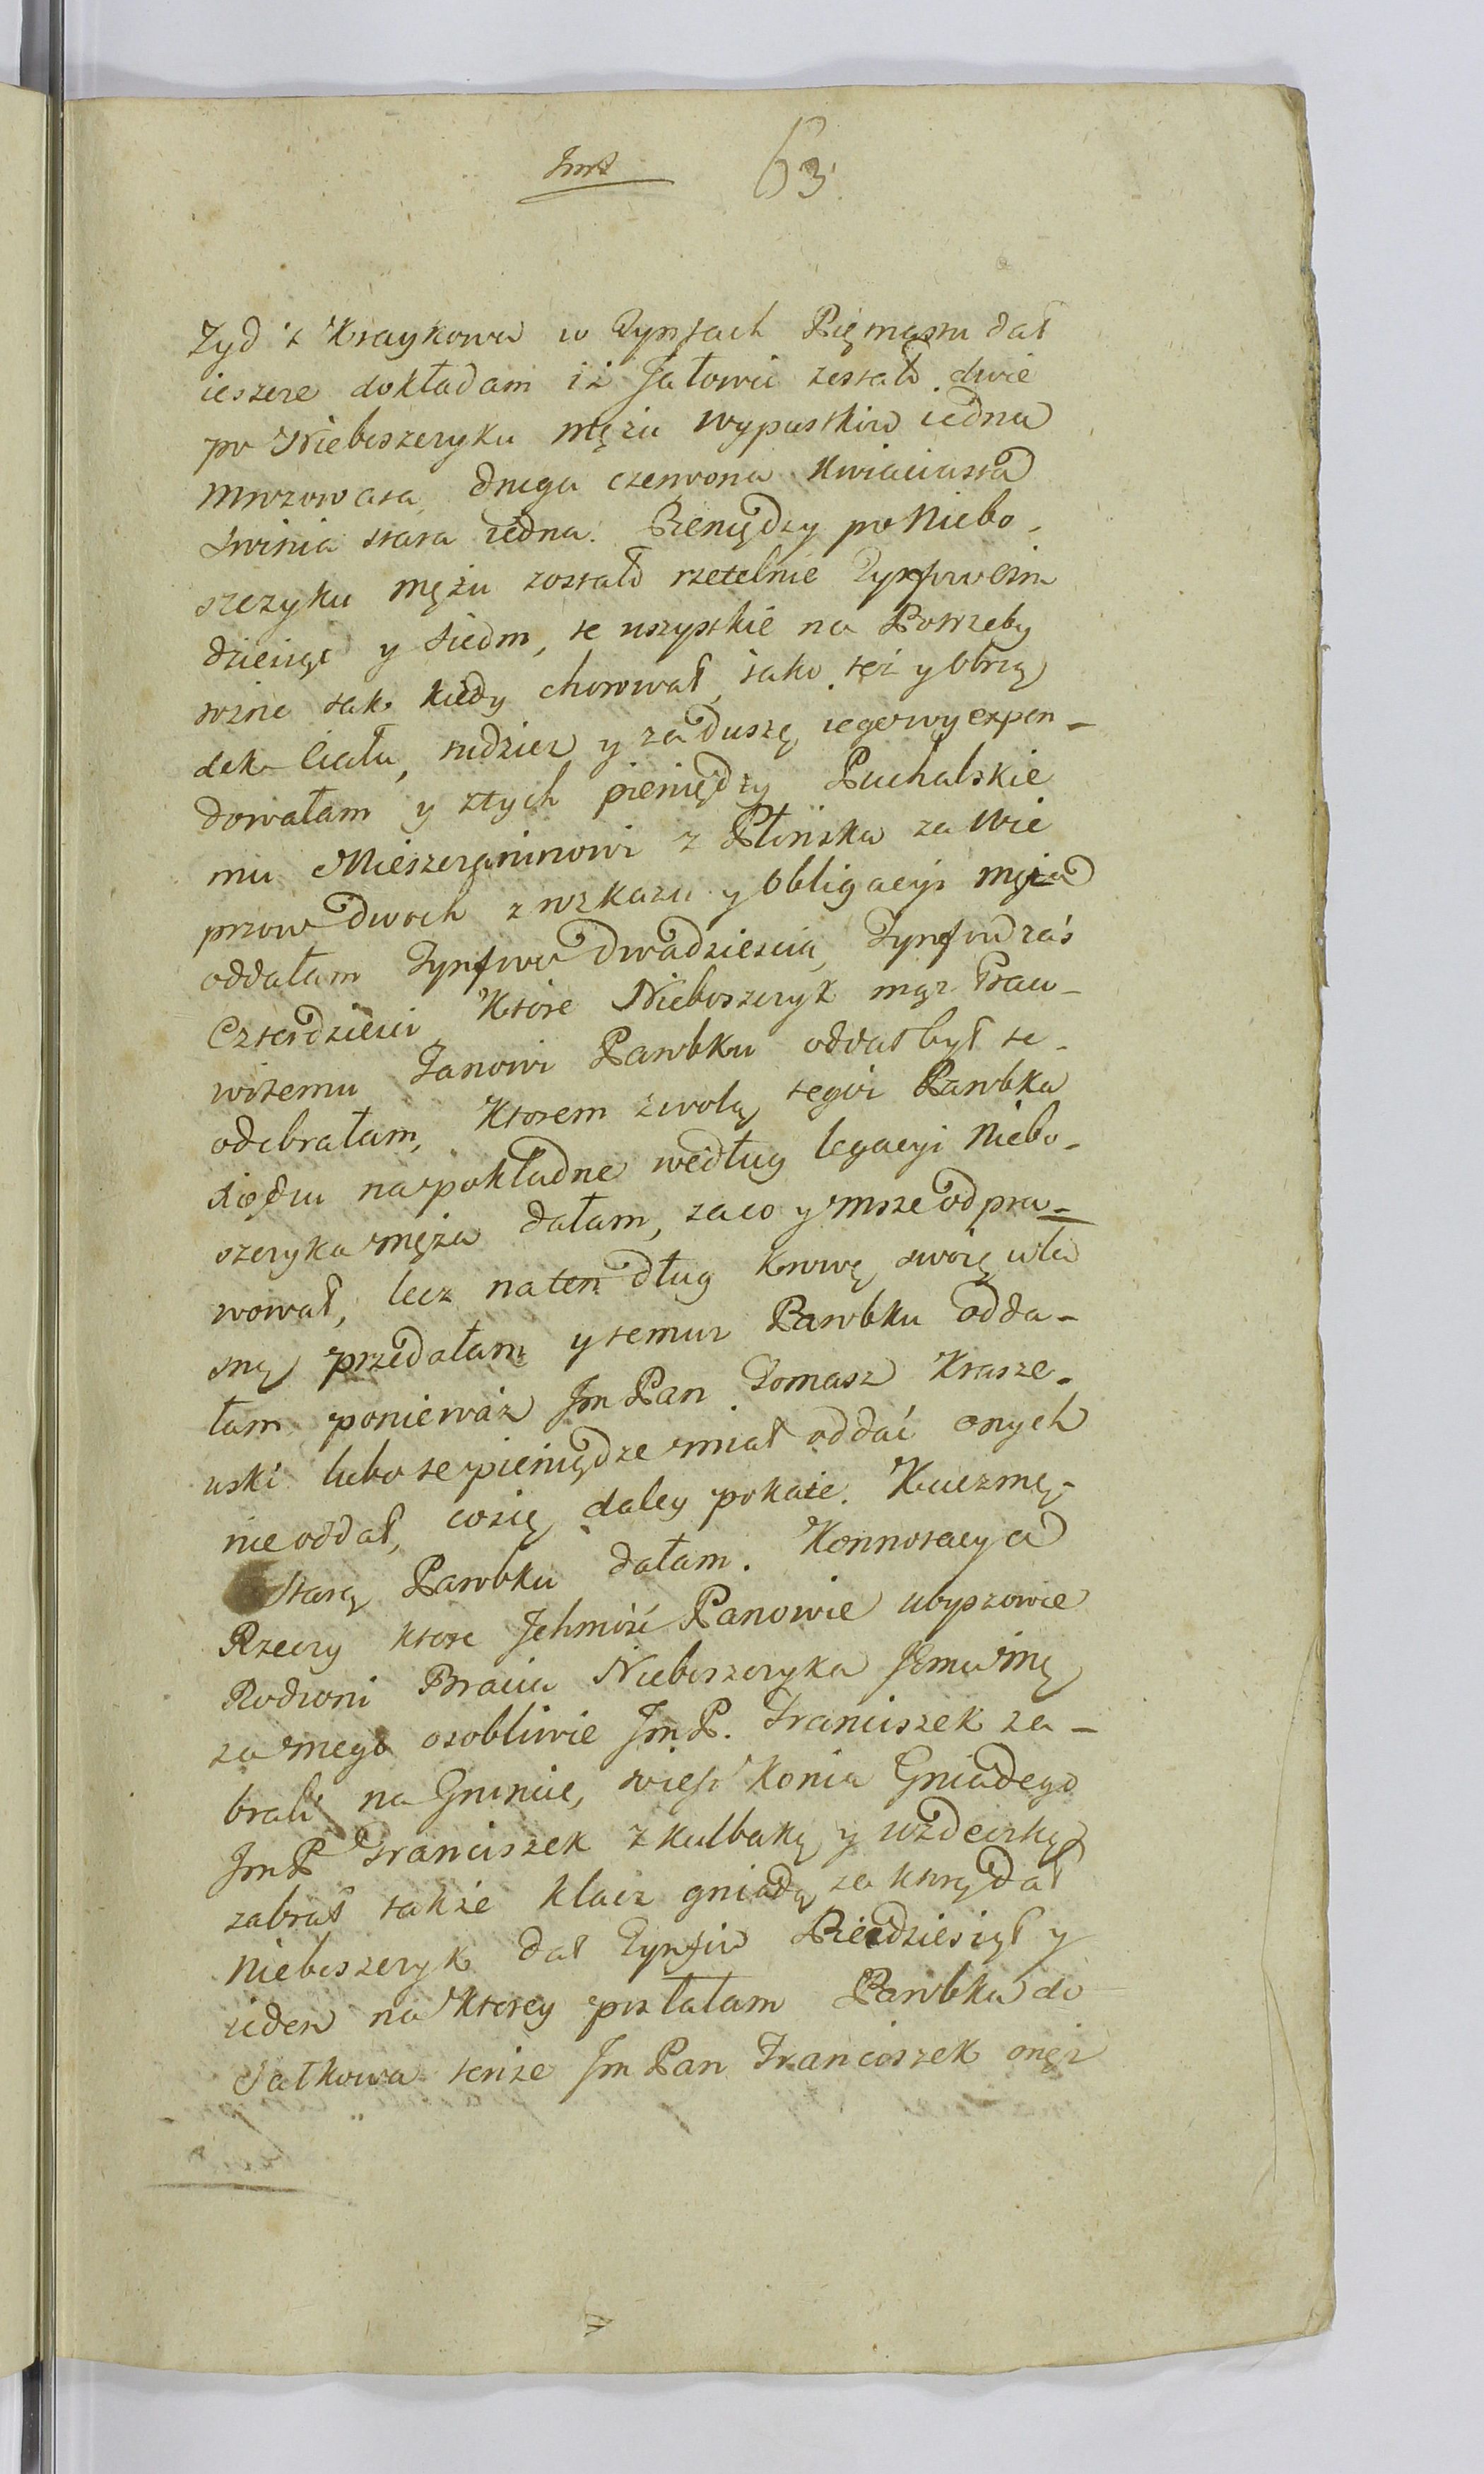 63
Zyd z Kraykowa w Tynfach Pięmąstu dał
ieszcze dokładam iż Jałowic zostało dwie
po Nieboszczyku mężu wypustkow iedna
mrozowata druga czerwona Kwiaciasta
Swinia stara iedna. Pieniędzy po Niebo-
szczyku mężu zostało rzetelnie Tynfow osm
dziesiąt y siedm, te wszystkie na Potrzeby
rożne tak kiedy chorował, iako też y obrzą
dek Ciału, tudzież y za duszę iego wyexpen-
dowałam y ztych pieniędzy Puchalskie
mu Mieszczaninowi z Płońska za Wie
przow dwoch z wskazu y obligacyi męża
oddałam Tynfow dwadziescia, Tynfow zaś
Czterdziesci Ktore Nieboszczyk mąż Praco-
witemu Janowi Parobku oddał był te
odebrałam, Ktorem zwolą tegoż Parobka
Xiędzu na pokładne według legacyi Niebo-
szczyka męża dałam, zaco y msze odpra-
wował, lecz na ten dług krowę swoię wła
sną przedałam y temuż Parobku odda-
łam ponieważ Jm Pan Tomasz Krasze-
wski lubo te pieniądze miał oddać onych
nie oddał, co się daley pokaże. Kuczmę
starą Parobku dałam. Konnotacya
Rzeczy ktore Jchmość Panowie Ubyszowie
Rodzoni Bracia Nieboszczyka Jmci mę
za mego osobliwie Jm P. Franciszek za-
brali na Gruncie, wieś Konia Gniadego
Jm P Franciszek z kulbaką y uzdeczką
zabrał także klacz gniadą za ktorą dał
Nieboszczyk dał Tynfow Pięcdziesiąt y
ieden na ktorey posłałam Parobka do
Satkowa tenże Jm Pan Franciszek onęż